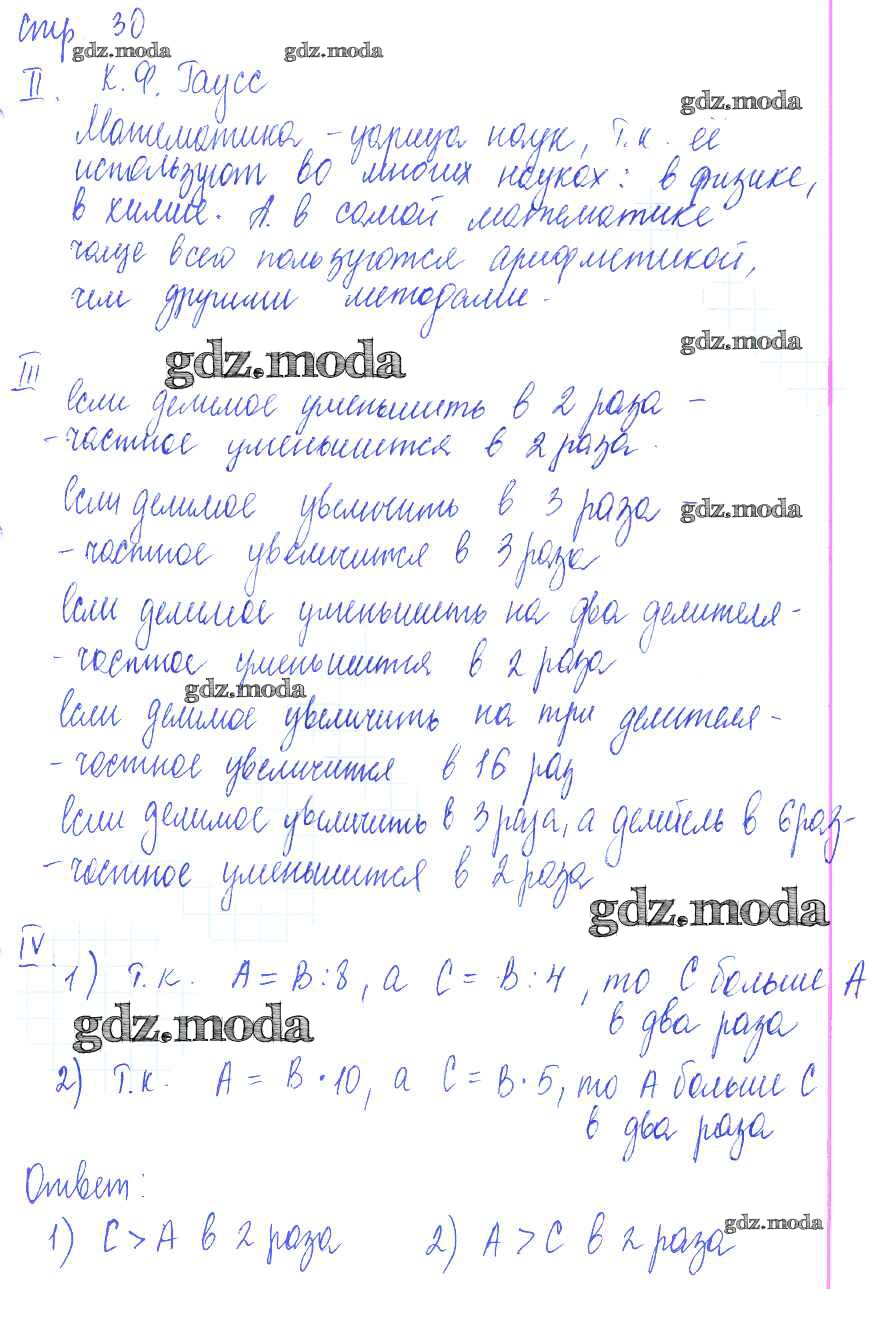 стр. 30
gdz.moda gdz.moda
II. К. Ф. Гаусс
gdz.moda
Математика - царица наук, т.к. её
используют во многих науках: в физике,
в химие. А в самой математике
чаще всего пользуются арифметикой,
чем другими методами.
gdz.moda
III gdz.moda
Если делимое уменьшить в 2 раза -
- частное уменьшится в 2 раза.
Если делимое увеличить в 3 раза - gdz.moda
- частное увеличится в 3 раза
Если делимое уменьшить на два делителя -
- частное уменьшится в 2 раза
gdz.moda
Если делимое увеличить на три делителя -
- частное увеличится в 16 раз
Если делимое увеличить в 3 раза, а делитель в 6 раз -
- частное уменьшится в 2 раза
gdz.moda
IV. 1) Т.к. A = B : 8, а C = B : 4, то C больше A
в два раза
gdz.moda
2) Т.к. A = B · 10, а C = B · 5, то A больше C
в два раза
Ответ:
1) C > A в 2 раза 2) A > C в 2 раза
gdz.moda